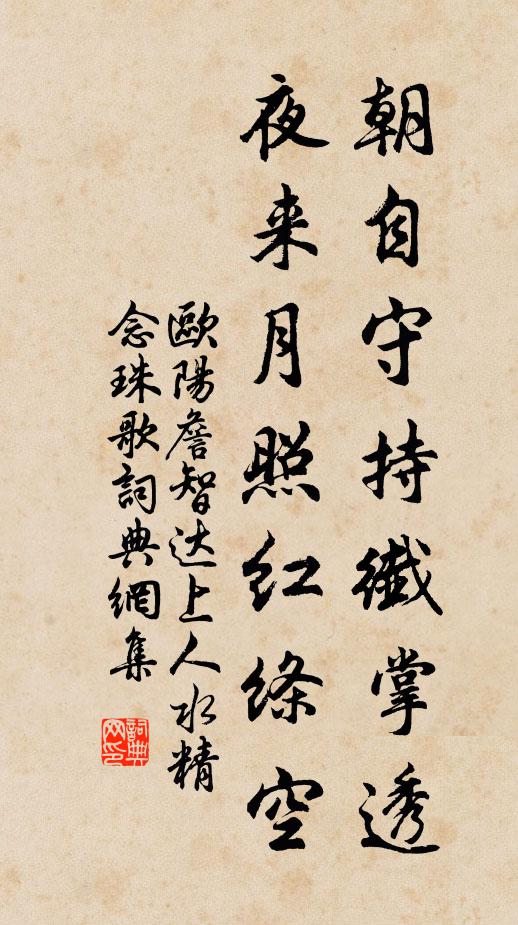 朝自守持纖掌透
夜来月照紅絛空
歐陽詹智达上人水精
念珠歌詞典網集
詞典
网印